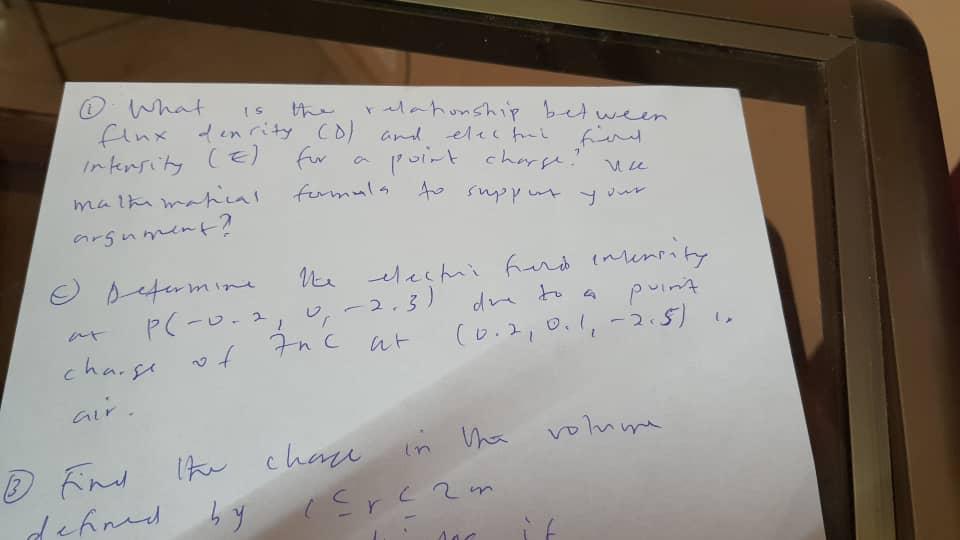 ① What is the relationship between
flux density (D) and electric field
intensity (E) for a point charge? Use
mathematical formula to support your
argument?
C) Determine the electric field intensity
at P(-0.2, 0, -2.3) due to a point
charge of 7nC at (0.2, 0.1, -2.5) in
air.
③ Find the charge in the volume
defined by 1 ≤ r ≤ 2m
if